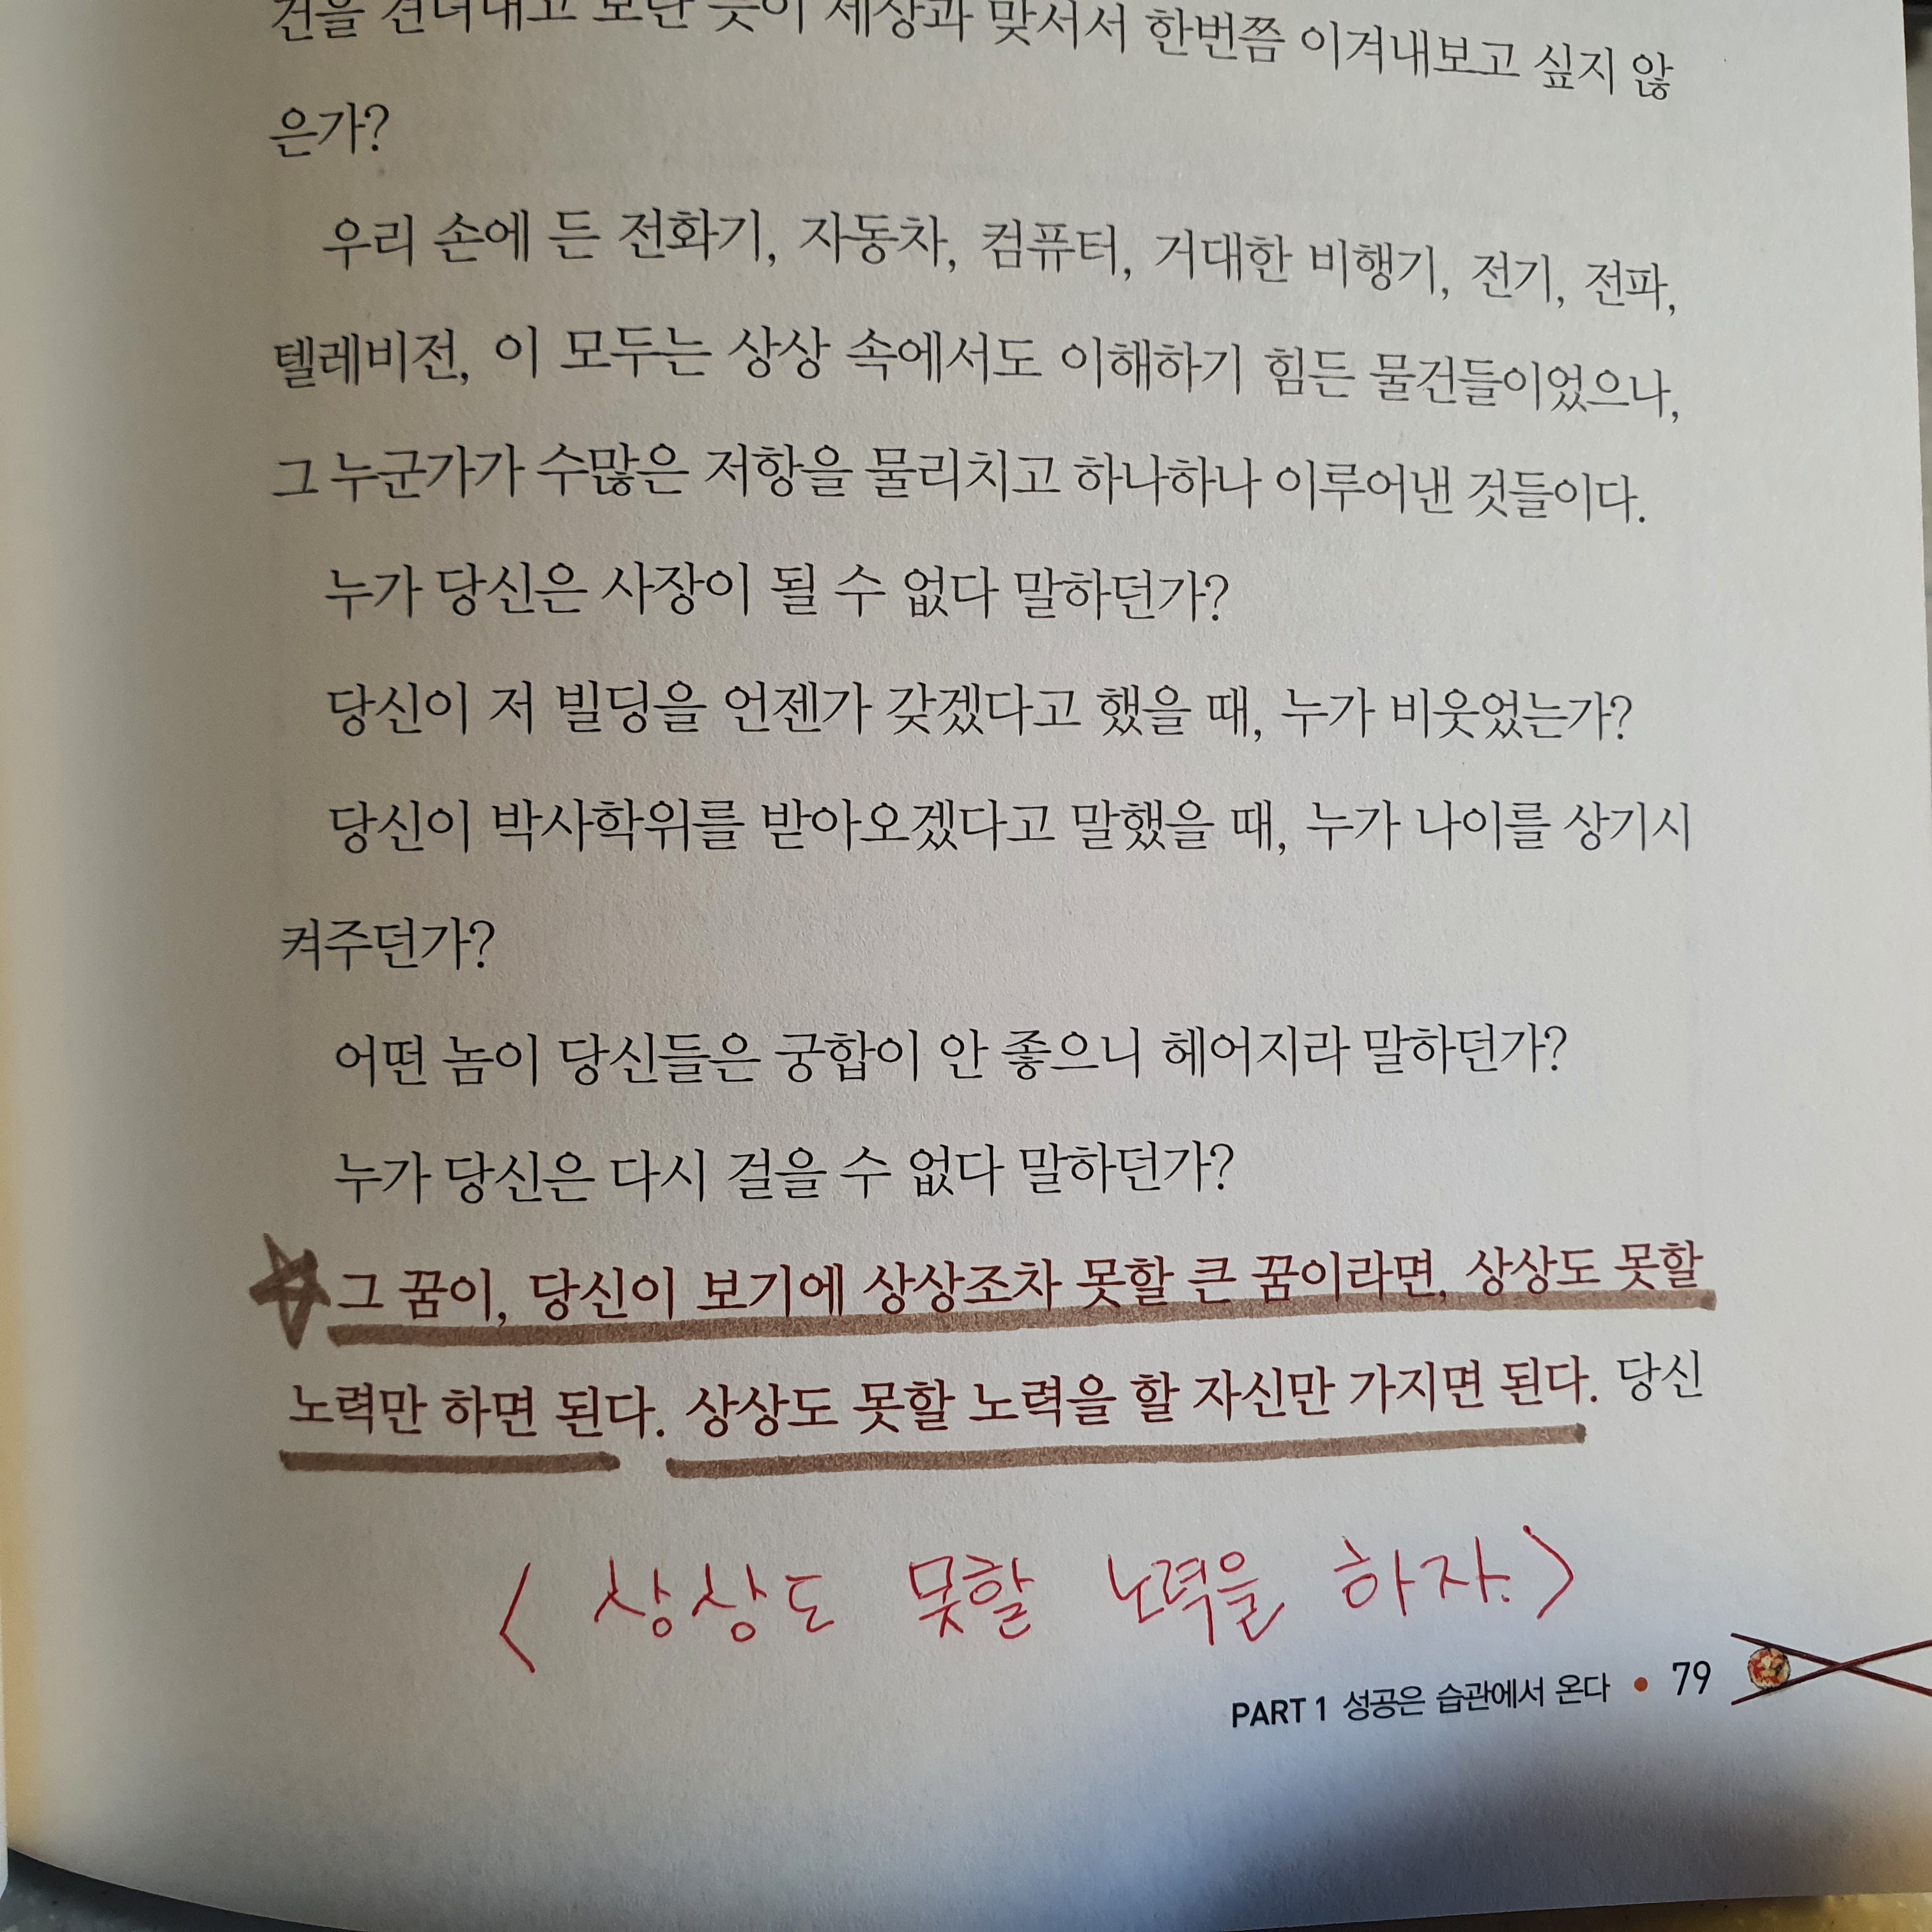 세상과 맞서서 한번쯤 이겨내보고 싶지 않
은가?
우리 손에 든 전화기, 자동차, 컴퓨터, 거대한 비행기, 전기, 전파,
텔레비전, 이 모두는 상상 속에서도 이해하기 힘든 물건들이었으나,
그 누군가가 수많은 저항을 물리치고 하나하나 이루어낸 것들이다.
누가 당신은 사장이 될 수 없다 말하던가?
당신이 저 빌딩을 언젠가 갖겠다고 했을 때, 누가 비웃었는가?
당신이 박사학위를 받아오겠다고 말했을 때, 누가 나이를 상기시
켜주던가?
어떤 놈이 당신들은 궁합이 안 좋으니 헤어지라 말하던가?
누가 당신은 다시 걸을 수 없다 말하던가?
그 꿈이, 당신이 보기에 상상조차 못할 큰 꿈이라면, 상상도 못할
노력만 하면 된다. 상상도 못할 노력을 할 자신만 가지면 된다. 당신
<상상도 못할 노력을 하자.>
PART 1 성공은 습관에서 온다 • 79